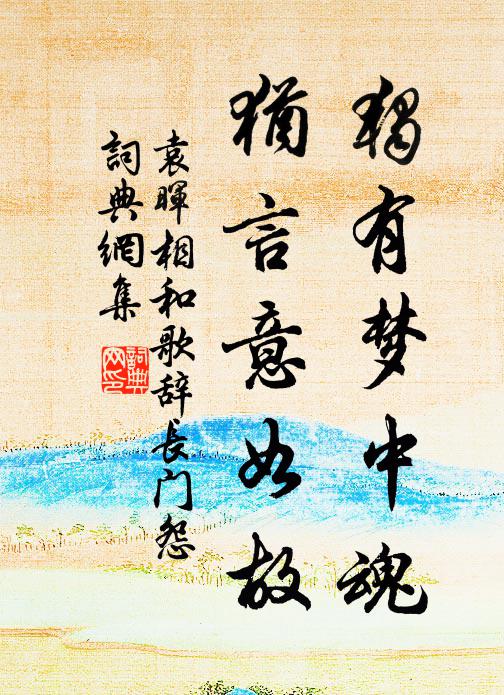 獨有梦中魂
猶言意如故
袁暉相和歌辞長门怨
詞典網集
詞典
网印